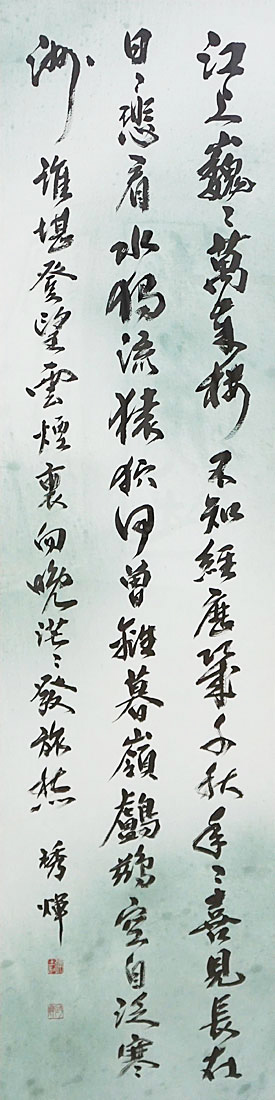 江上巍〻萬歲樓不知經歷幾千秋年〻喜見長在
日〻悲看水獨流猿狖何曾離暮嶺鸕鶿空自泛寒
洲誰堪登望雲煙裏向晚茫〻發旅愁